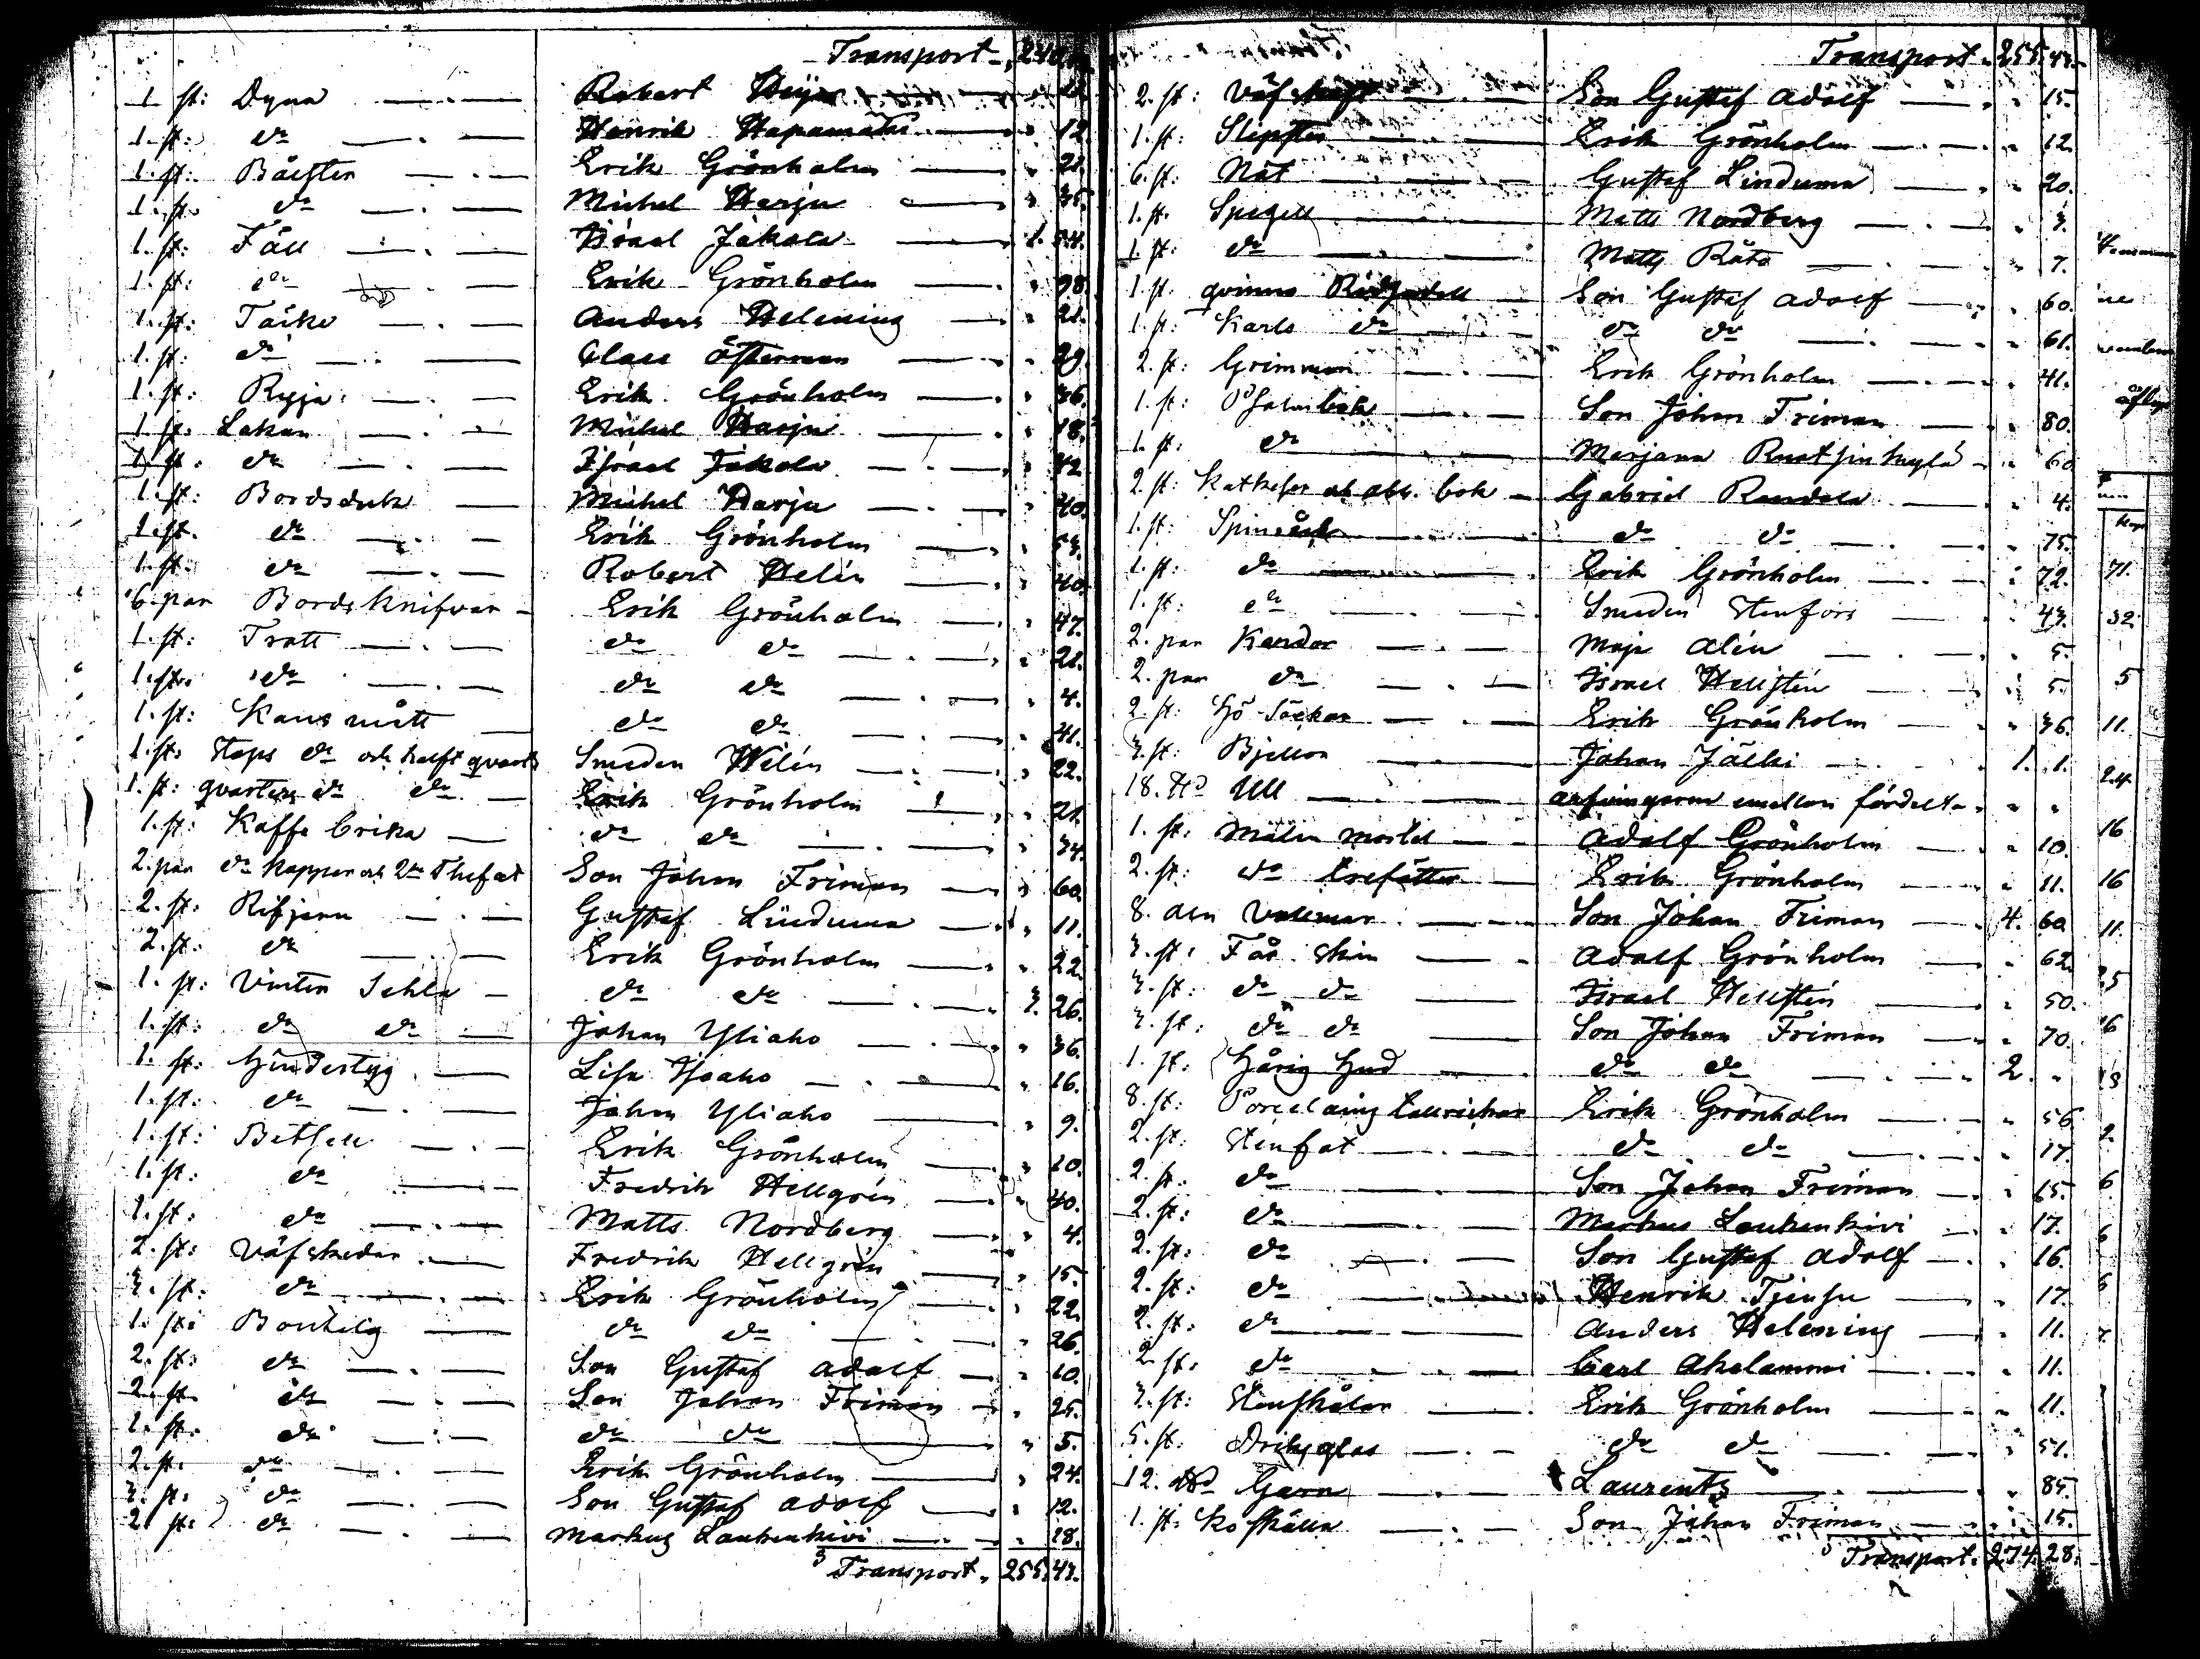 Transport
1 st: Dyna Robert
1. st: do Henrik 12.
1. st: Bålster Erik Grönholm 21.
1. st. do Michel Harju 35.
1. st: Fäll Israel Jakola 1. 54.
1. st: do Erik Grönholm 98.
1. st: Täcke Anders Helening 21.
1. st: do Claes Österman 29.
1. st: Ryja Erik Grönholm 36.
1. st: Lakan Michel Harju 18.
1. st. do Israel Jakola 42.
1. st: Bordsduk Michel Harju 40.
1. st. do Erik Grönholm 53.
1. st. do Robert Helin 40.
6. par Bords Knifvar Erik Grönholm 47.
1. st: Tratt do do 21.
1. st. do do do 4.
1. st: Kans mått do do 41.
1. st. Stops do och halft qvart Smeden Welin 22.
1. st: qvarters do do Erik Grönholm 21.
1. st: Kaffe brika do do 34.
2. par do Koppar och 2 Thefat Son Johan Friman 60.
2. st: Rifjern Gustaf Linduma 11.
2. st: do Erik Grönholm 22.
1. st: Vinter Sehla do do 3. 26.
1. st: do do Johan Yliaho 36.
1. st: Hindertyg Lisa 16.
1. st: do Johan Yliaho 9.
1. st: Betsell Erik Grönholm 10.
1. st: do Fredrik Hellgrén 40.
1. st: do Matts Nordberg 4.
2. st: Väfskedar Fredrik Hellgrén 15.
3. st: do Erik Grönholm 22.
1. st: do do 26.
2. st: do Son Gustaf Adolf 10.
2. st. do Son Johan Friman 25.
2. st. do do do 5.
2. st. do Erik Grönholm 24.
3. st. do Son Gustaf Adolf 12.
2. st: do Markus Laukenkivi 18.
Transport. 255. 43.
Transport. 255. 43.
2. st: Son Gustaf Adolf 15.
1. st: Slipsten Erik Grönholm 12.
6. st: Nät Gustaf Linduma 20.
1. st. Spegell Matts Nordberg 3.
1. st: do Matts Räto 7.
1. st. qvinns Son Gustaf Adolf 60.
1. st: Karls do do do 61.
2. st: Grimmor Erik Grönholm 41.
1. st: Psalmbok Son Johan Friman 80.
1. st: do Marjana 60
2. st: Katkeser ok abc. bok Gabriel Randela 4.
1. st: Spinråk do do 75.
1. st: do Erik Grönholm 72.
1. st: do Smeden Stenfors 43.
2. par Kardor Maja Alén 5.
2. par do Israel Hellstén 5.
2 st: Hö Säckar Erik Grönholm 36.
3. st: Bjellror Johan Jälki 1. 1.
18. ℔ Ull arfvingarne emellan fördelta
1. st: Målen mortel Adolf Grönholm 10.
2. st: do trefötter Erik Grönholm 11.
8. aln Vallmar Son Johan Friman 4. 60
3. st: Får Skin Adolf Grönholm 62.
3. st: do do Israel Hellstén 50.
3. st: do do Son Johan Friman 70.
1. st: Hårig Hud do do 2.
8. st: Porcelaing tallrickar Erik Grönholm 56
2. st: Stenfat do do 17.
2. st. do Son Johan Friman 15.
2. st: do Markus Laukenkivi 17.
2. st: do Son Gustaf Adolf 16.
2. st: do Henrik Tjensu 17.
2. st. do Anders Helening 11.
2 st. do Carl Aholammi 11.
3. st: Stenskålar Erik Grönholm 11.
5. st. Driks glas do do 51.
12. ℔ Garn Laurents 85.
1. st. Ko skälla Son Johan Friman 15.
Transport. 274. 28.
71.
32.
5
11.
24
16
16
11.